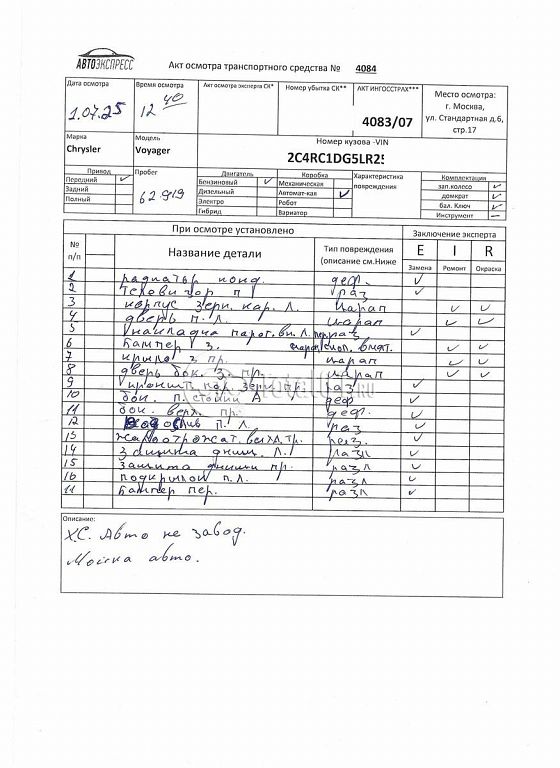 АВТОЭКСПРЕСС
Акт осмотра транспортного средства № 4084
Дата осмотра
1.07.25
Время осмотра
12 40
Акт осмотра эксперта СК*
Номер убытка СК**
АКТ ИНГОССТРАХ***
4083/07
Место осмотра:
г. Москва,
ул. Стандартная д.6,
стр.17
Марка
Chrysler
Модель
Voyager
Номер кузова -VIN
2C4RC1DG5LR2
Привод
Передний ✓
Задний
Полный
Пробег
62919
Двигатель
Бензиновый ✓
Дизельный
Электро
Гибрид
Коробка
Механическая
Автомат-кая ✓
Робот
Вариатор
Характеристика
повреждения
Комплектация
зап.колесо ✓
домкрат ✓
бал. Ключ ✓
Инструмент –
При осмотре установлено
Заключение эксперта
№
п/п
Название детали
Тип повреждения
(описание см.Ниже
E I R
Замена Ремонт Окраска
1 радиатор конд. деф. ✓
2 п раз ✓
3 корпус зерк. нар. л. царап ✓ ✓
4 дверь п. л. царап ✓ ✓
5 накладка порог. вн. л. ✓
6 бампер з. ✓ ✓
7 крыло з пр. царап ✓ ✓
8 дверь бок. з. пр. царап ✓ ✓
9 кроншт. нар. зерк. пр. раз ✓
10 бок. п. стойки А деф ✓
11 бок. верх. пр. деф. ✓
12 п. л. раз ✓
13 ✓
14 защита днищ. л. разл ✓
15 защита днища пр. разл ✓
16 подкрылок п.л. разл ✓
11 бампер пер. разл ✓
Описание:
Х.С. Авто не завод.
Мойка авто.